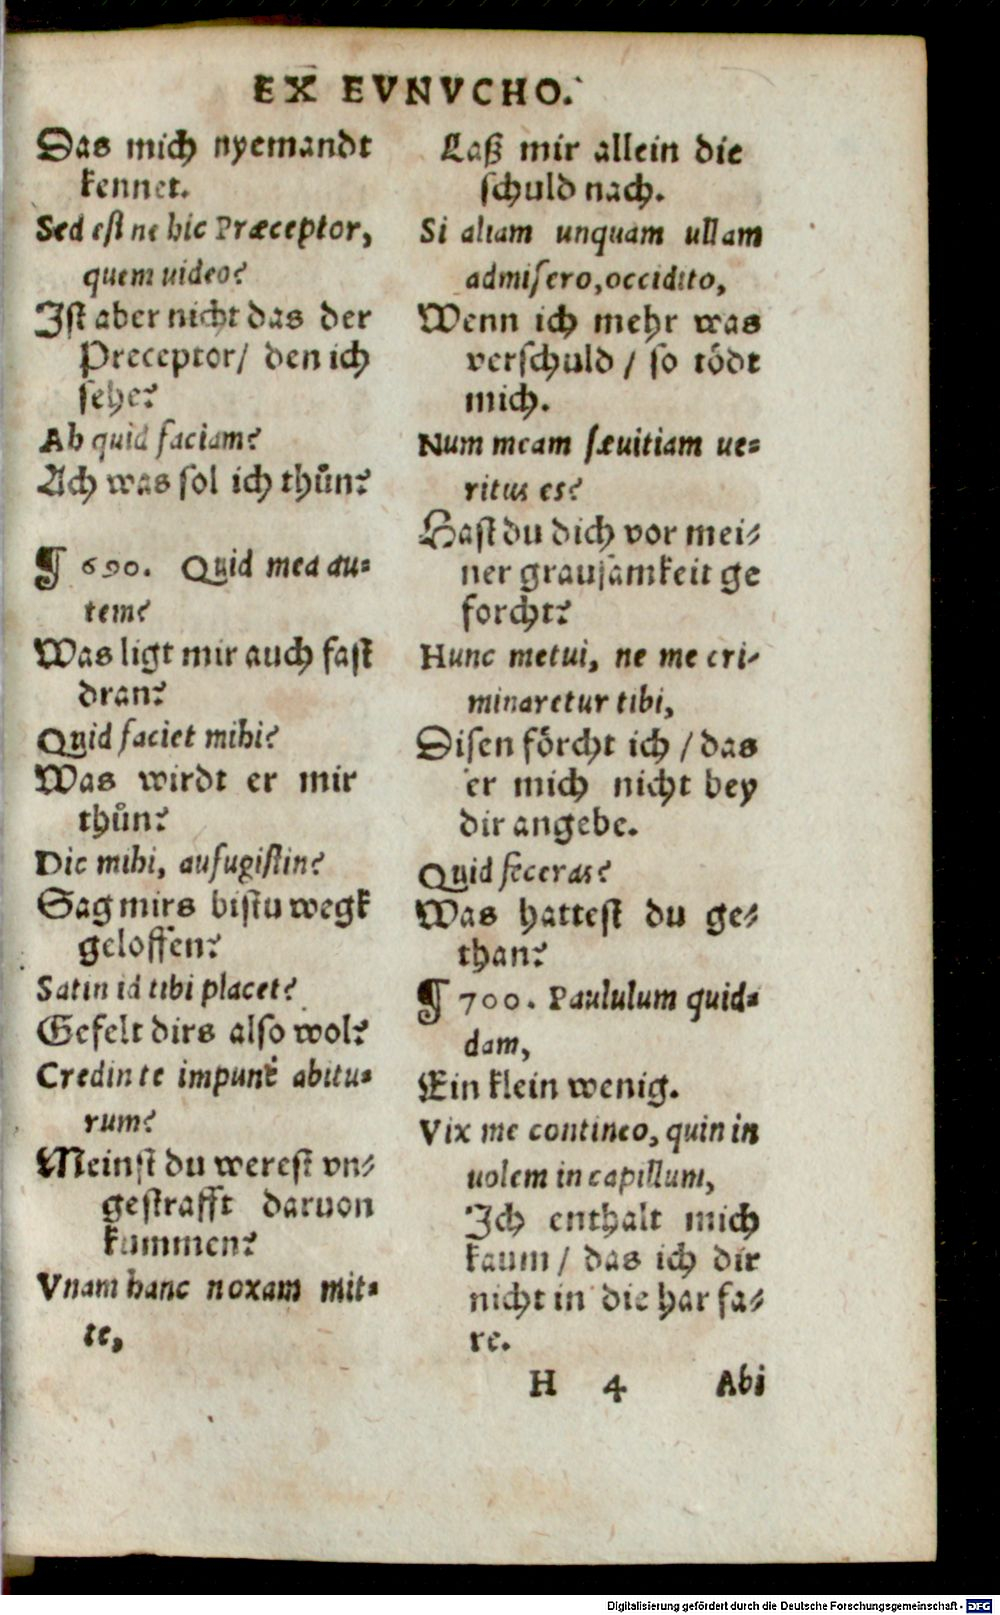 EX EVNVCHO.
Das mich nyemandt
kennet.
Sed est ne hic Præceptor,
quem uideo?
Ist aber nicht das der
Preceptor/ den ich
sehe?
Ah quid faciam?
Ach was sol ich thůn?
¶ 690. Quid mea au-
tem?
Was ligt mir auch fast
dran?
Quid faciet mihi?
Was wirdt er mir
thůn?
Dic mihi, aufugistin?
Sag mirs bistu wegk
geloffen?
Satin id tibi placet?
Gefelt dirs also wol?
Credin te impunè abitu-
rum?
Meinst du werest vn-
gestrafft daruon
kummen?
Vnam hanc noxam mit-
te,
Laß mir allein die
schuld nach.
Si aliam unquam ullam
admisero, occidito,
Wenn ich mehr was
verschuld / so tödt
mich.
Num meam sæuitiam ue-
ritus es?
Hast du dich vor mei-
ner grausamkeit ge
forcht?
Hunc metui, ne me cri-
minaretur tibi,
Disen förcht ich / das
er mich nicht bey
dir angebe.
Quid feceras?
Was hattest du ge-
than?
¶ 700. Paululum quid-
dam,
Ein klein wenig.
Vix me contineo, quin in
uolem in capillum,
Ich enthalt mich
kaum / das ich dir
nicht in die har fa-
re.
H 4 Abi
Digitalisierung gefördert durch die Deutsche Forschungsgemeinschaft - DFG